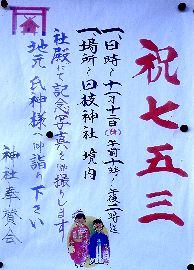 祝七五三
一、日時〜十一月十三日(日)午前十時〜午後二時迄
一、場所〜田枝神社境内
社殿にて記念写真を御撮りします
地元の氏神様へ御詣り下さい
神社奉賛会